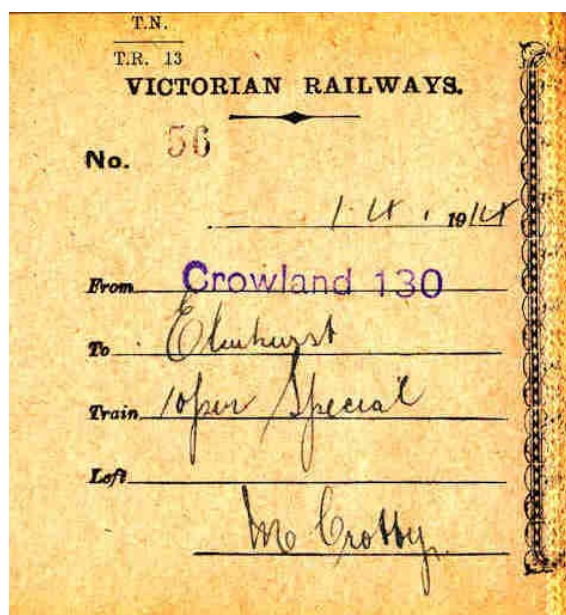 T.N.
T.R. 13
VICTORIAN RAILWAYS.
No. 56
1.4.1914
From Crowland 130
To Elmhurst
Train Special
Left